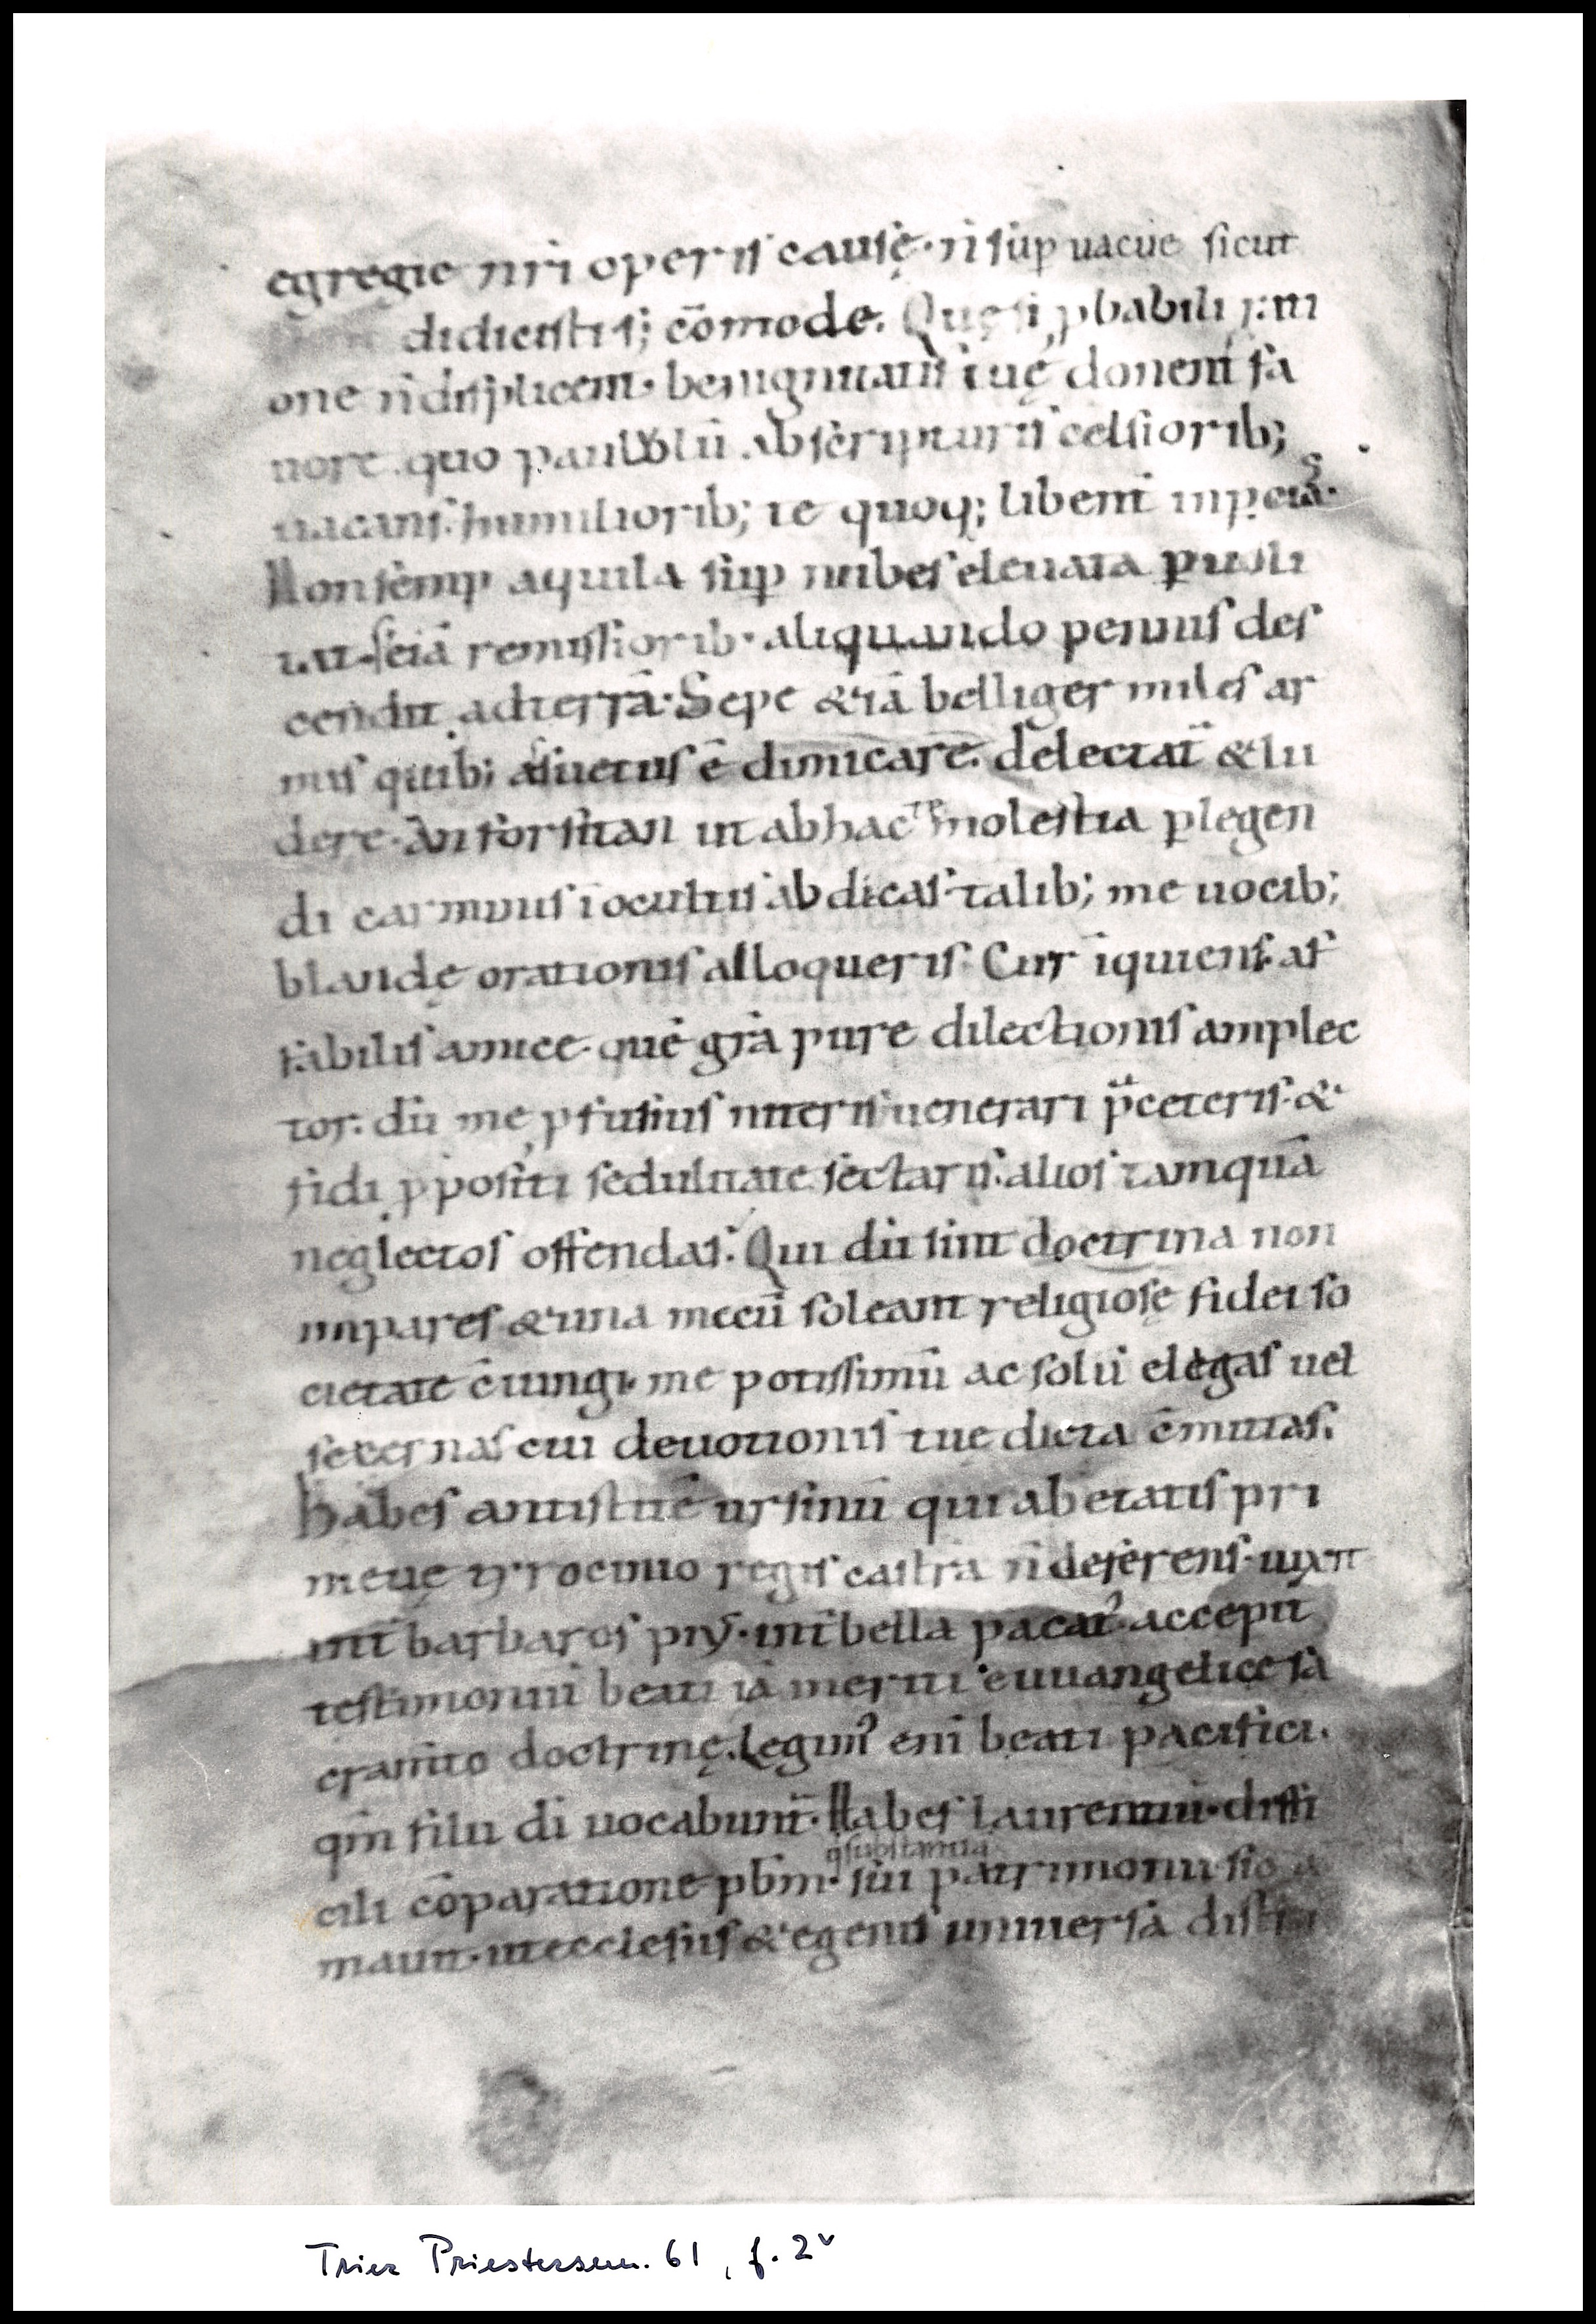 egregie nr̄i operis causę· n̄ suꝑ uacue sicut
didicistis; cōmode. Quę si ꝓbabili
one n̄ displicent· benignitatis tuę donent fa
uore quo paululū ab scripturis celsiorib;
uacans humiliorib; te quoq; libent inp
Non semꝑ aquila suꝑ nubes eleuata ꝑuoli
tat· s; etiā remissiorib· aliquando pennis des
cendit ad terrā· Sepe &iā belliger miles ar
mis quib; assuetus ē dimicare. delectat̄ & lu
dere· An forsitan ut ab hac te molestia ꝑlegen
di carminis ioculitis abdicas· talib; me uocib;
blandę orationis alloqueris· Cur iquiens· af
fabilis amice· quē gr̄a pure dilectionis amplec
tor· dū me ꝓfusius niteris uenerari p̄ ceteris· &
fidi ꝓpositi sedulitate sectaris· alios tamquā
neglectos offendas· Qui dū sint doctrina non
impares & una mecū soleant religiosę fidei so
cietate c̄iungi· me potissimū ac solū elegas uel
secernas cui deuotionis tuę dicta c̄mittas.
Habes antistitē ursinū qui ab etatis pri
meuę tyrocinio regis castra n̄ deserens· uixit
int̄ barbaros pius· int̄ bella pacat᷒· accepit
testimoniū beati iā meriti euuangelice sa
cramto doctrinę. Legim᷒ eni beati pacifici·
qm̄ filii di uocabunt̄· Habes laurentiū· diffi
q̄ substantia
cili cōparatione pbm̄· sui patrimonii sic
mauit· ut ecclesiis & egenis uniuersa distri
Trier Priestersem. 61, f. 2v